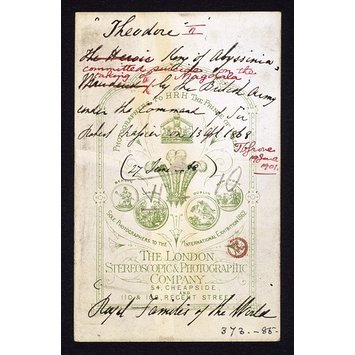 "Theodore" II
The Heroic King of Abyssinia,
committed suicide on the
taking of Magdala
Murdered by the British Army
under the Command of Sir
Robert Napier on 13 Apl 1868
PHOTOGRAPHERS TO HRH THE PRINCE OF
(27 June 68)
BERLIN
DUBLIN
SOLE PHOTOGRAPHERS TO THE INTERNATIONAL EXHIBITION 1862
THE LONDON
STEREOSCOPIC & PHOTOGRAPHIC
COMPANY
54, CHEAPSIDE.
AND
110 & 108, REGENT STREET
Royal Families of the World
373.-85